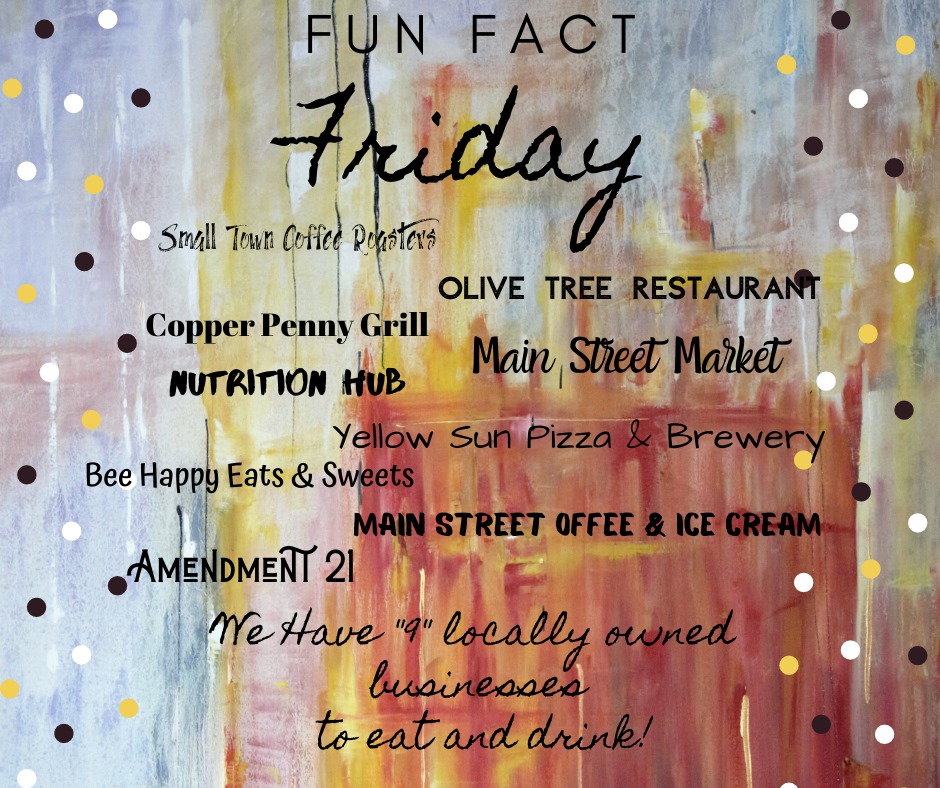 FUN FACT
Friday
Small Town Coffee Roasters
OLIVE TREE RESTAURANT
Copper Penny Grill
Main Street Market
NUTRITION HUB
Yellow Sun Pizza & Brewery
Bee Happy Eats & Sweets
MAIN STREET OFFEE & ICE CREAM
AMENDMENT 21
We Have "9" locally owned
businesses
to eat and drink!